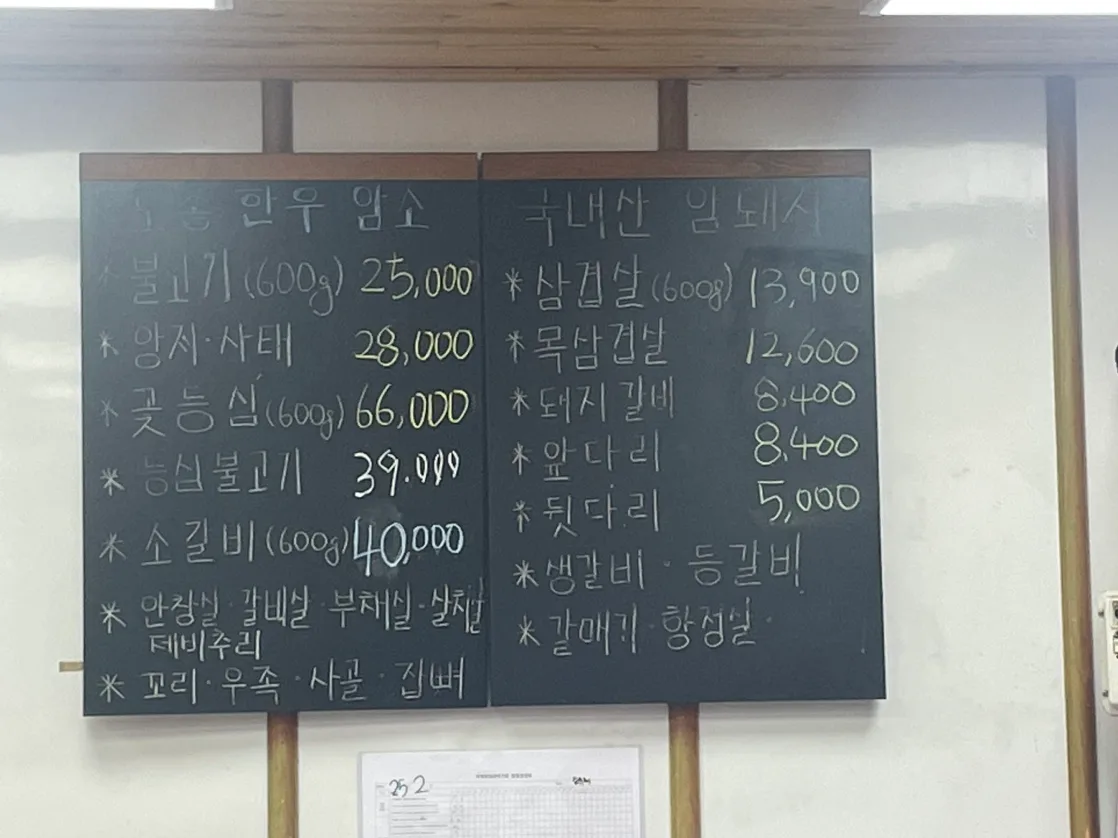 한우 암소
불고기 (600g) 25,000
* 양지·사태 28,000
* 꽃등심 (600g) 66,000
* 등심불고기 39.000
* 소갈비 (600g) 40,000
* 안창살·갈비살·부채살·살치살
제비추리
* 꼬리·우족·사골·잡뼈
국내산 암돼지
* 삼겹살 (600g) 13,900
* 목삼겹살 12,600
* 돼지갈비 8,400
* 앞다리 8,400
* 뒷다리 5,000
* 생갈비·등갈비
* 갈매기·항정살·
25 2